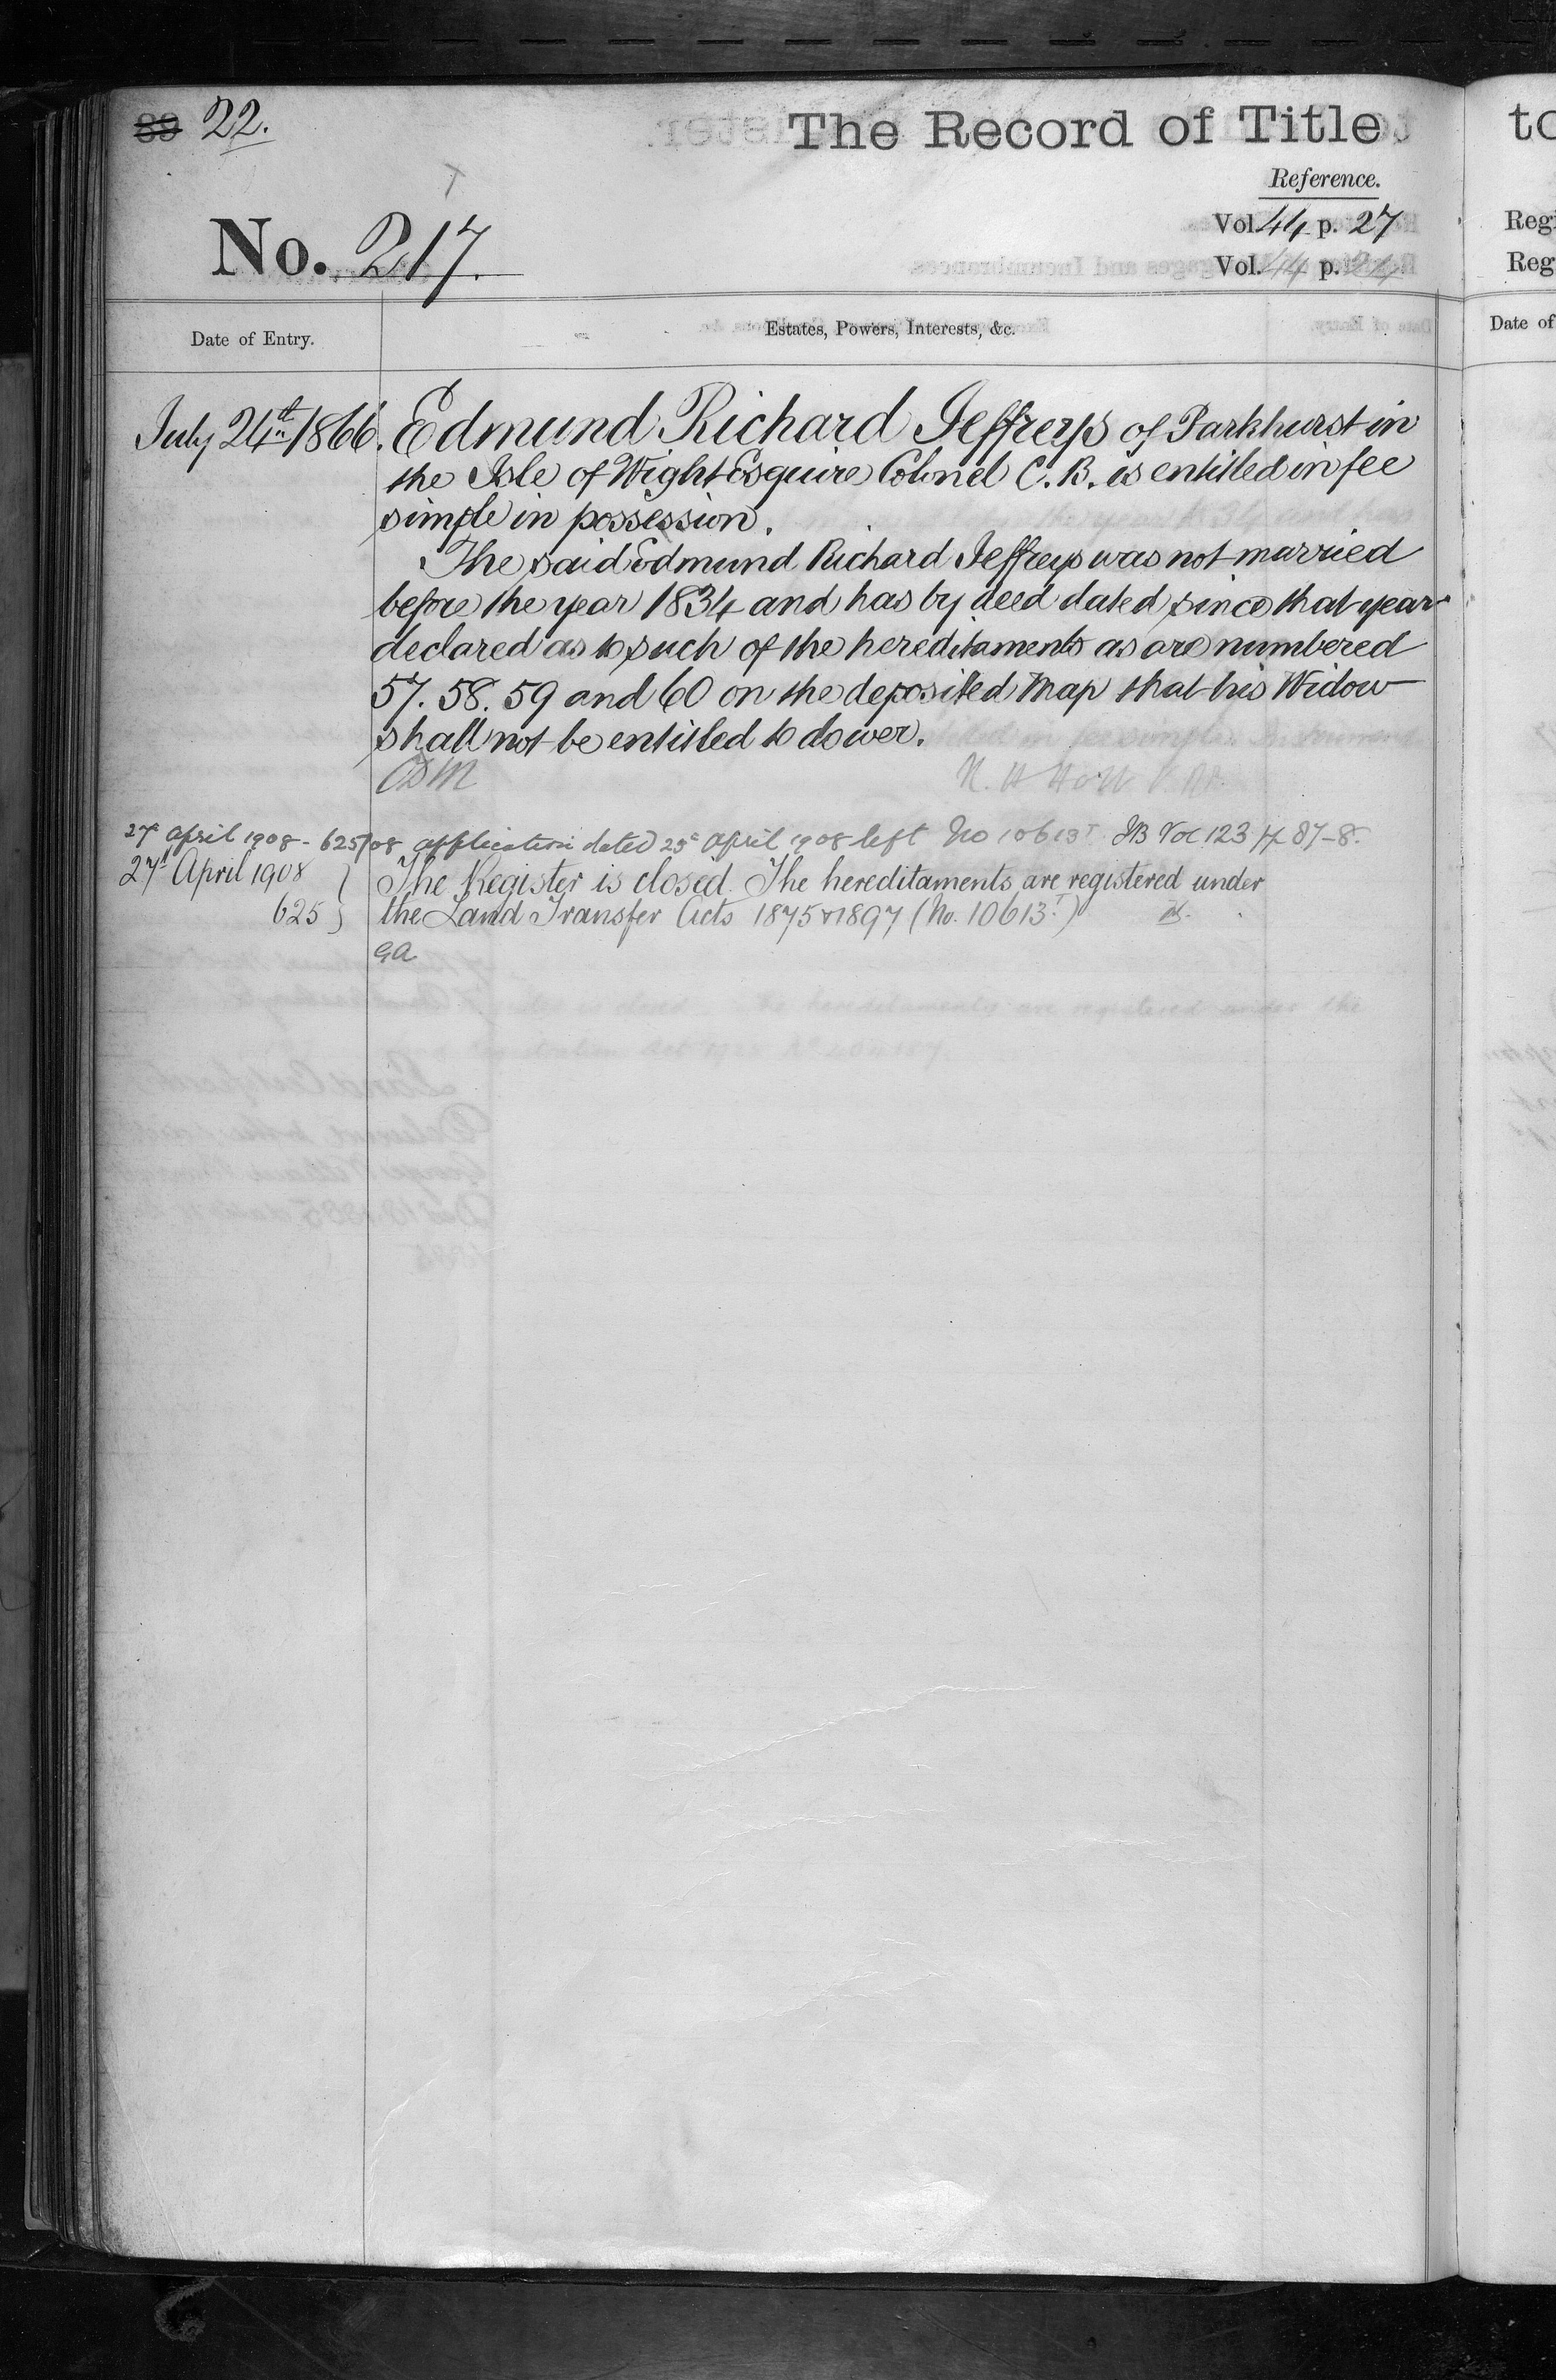 89 22.
The Record of Title
Reference.
T
No. 217.
Vol. 44 p. 27
Vol. 44 p. 24
Date of Entry.
Estates, Powers, Interests, &c.
July 24th 1866. Edmund Richard Jeffreys of Parkhurst in
the Isle of Wight Esquire Colonel C. B. is entitled in fee
simple in possession.
The said Edmund Richard Jeffreys was not married
before the year 1834 and has by deed dated since that year
declared as to such of the hereditaments as are numbered
57. 58. 59 and 60 on the deposited Map that his Widow
shall not be entitled to dower.
27 April 1908 - 625/08 application dated 25 April 1908 left No 10613T. Vol 123 87-8.
27th April 1908 The Register is closed. The hereditaments are registered under
625 the Land Transfer Acts 1875 & 1897 (No. 10613.T)
GA
to
Regi
Reg
Date of